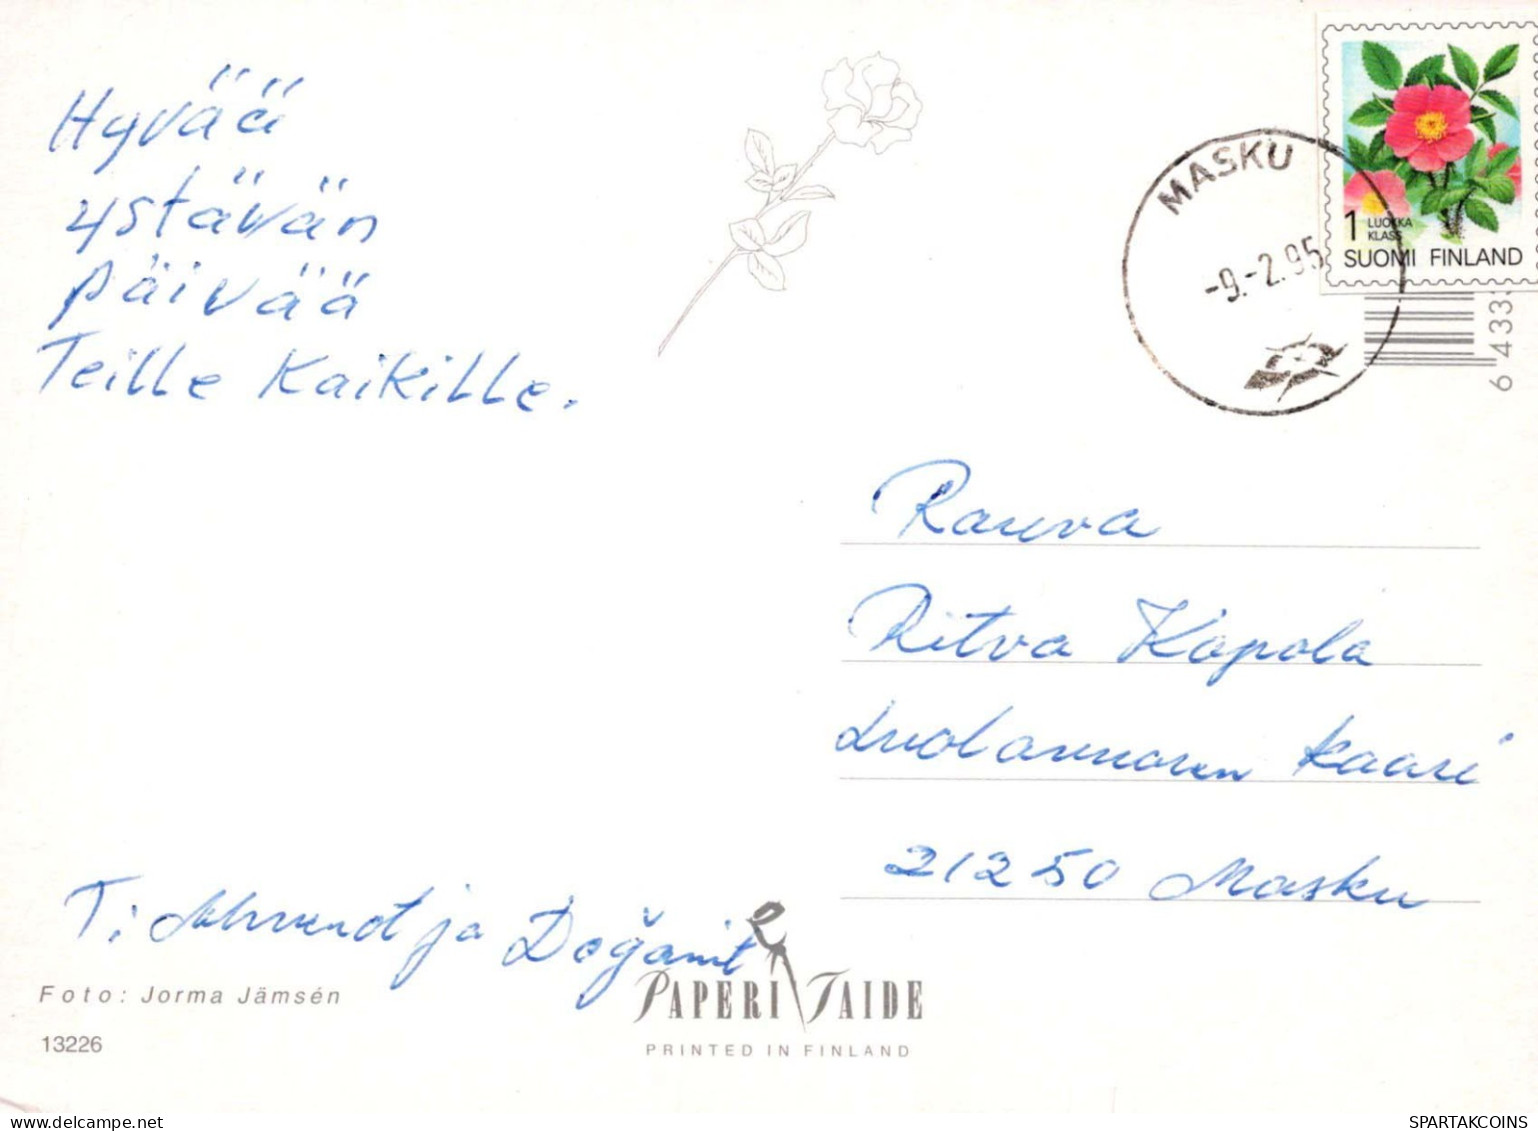 Hyvää
ystävän
päivää
Teille Kaikille.
MASKU
-9.-2.95
1 LUOKKA
KLASS
SUOMI FINLAND
6 433
Rauva
Ritva Kopola
kaari
21250 Masku
T: ja Doğanit
Foto: Jorma Jämsén
PAPERI TAIDE
13226
PRINTED IN FINLAND
delcampe.net
SPARTAKCOINS